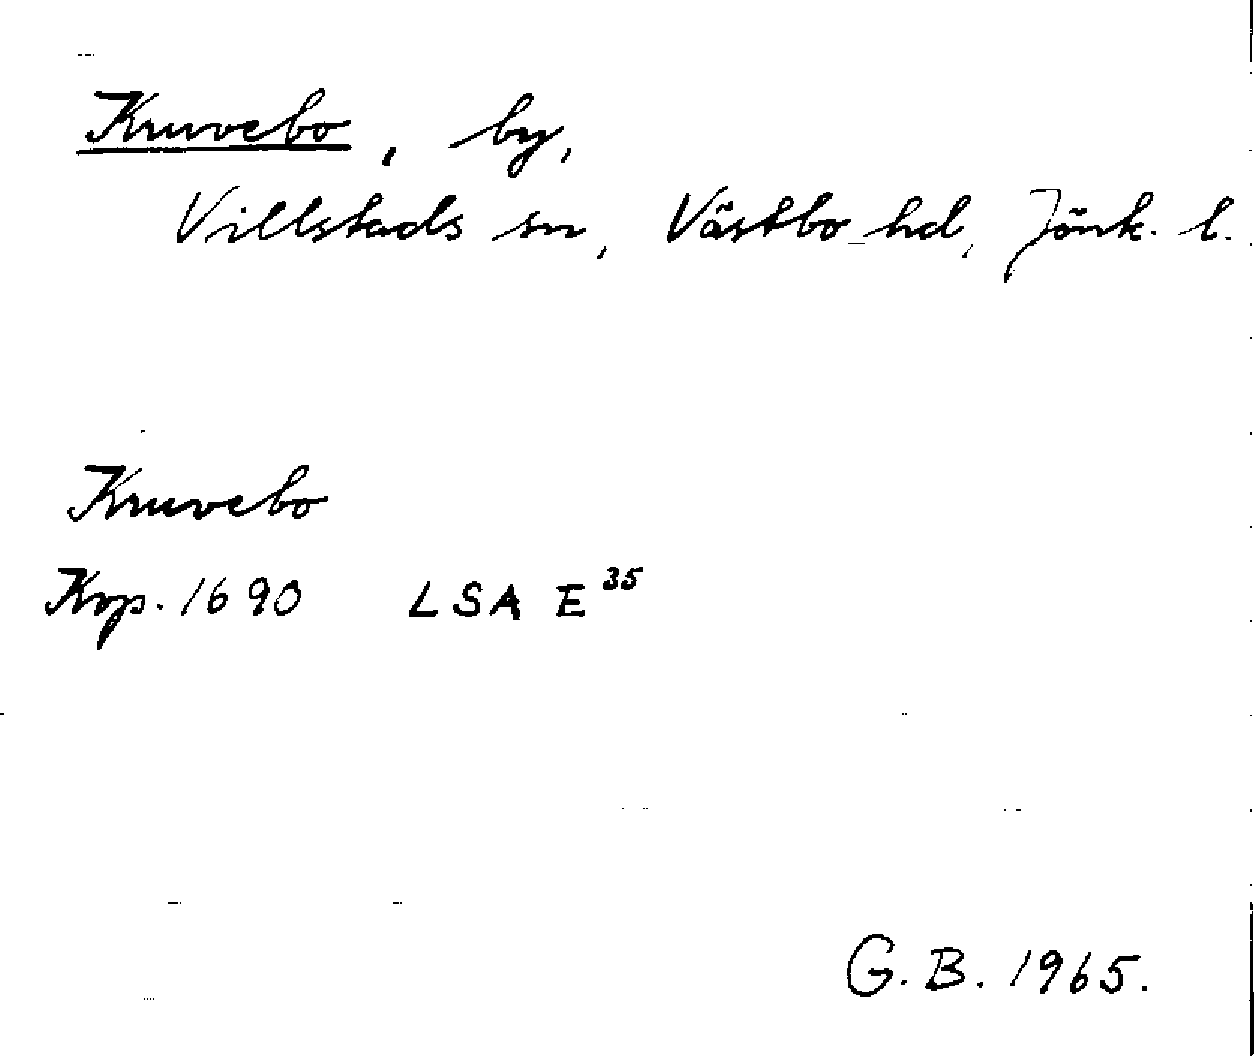 Kruvebo, by,
Villstads sn, Västbo hd, Jönk. l.
Kruvebo
Kop. 1690 LSA E³⁵
G. B. 1965.